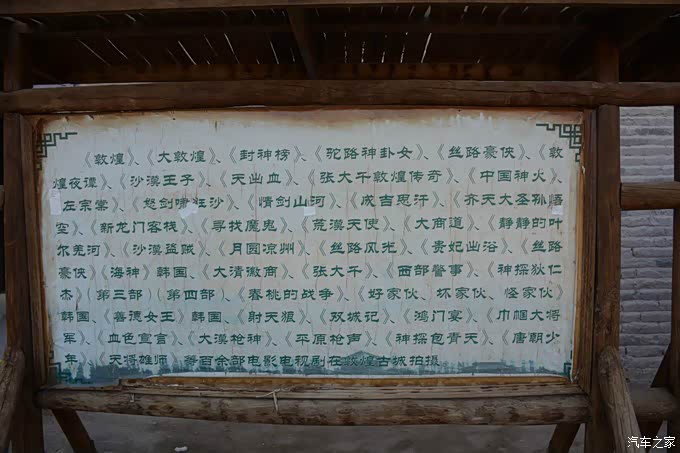 《敦煌》、《大敦煌》、《封神榜》、《驼路神卦女》、《丝路豪侠》、《敦
煌夜谭》、《沙漠王子》、《天出血》、《张大千敦煌传奇》、《中国神火》、
《左宗棠》、《怒剑啸狂沙》、《情剑山河》、《成吉思汗》、《齐天大圣孙悟
空》、《新龙门客栈》、《寻找魔鬼》、《荒漠天使》、《大商道》、《静静的叶
尔羌河》、《沙漠盗贼》、《月圆凉州》、《丝路风光》、《贵妃出浴》、《丝路
豪侠》《海神》韩国、《大清徽商》、《张大千》、《西部警事》、《神探狄仁
杰》(第三部)(第四部)、《春桃的战争》、《好家伙、坏家伙、怪家伙》
韩国、《善德女王》韩国、《射天狼》、《双城记》、《鸿门宴》、《巾帼大将
军》、《血色宣言》、《大漠枪神》、《平原枪声》、《神探包青天》、《唐朝少
年》、《天将雄师》等百余部电影电视剧在敦煌古城拍摄
汽车之家